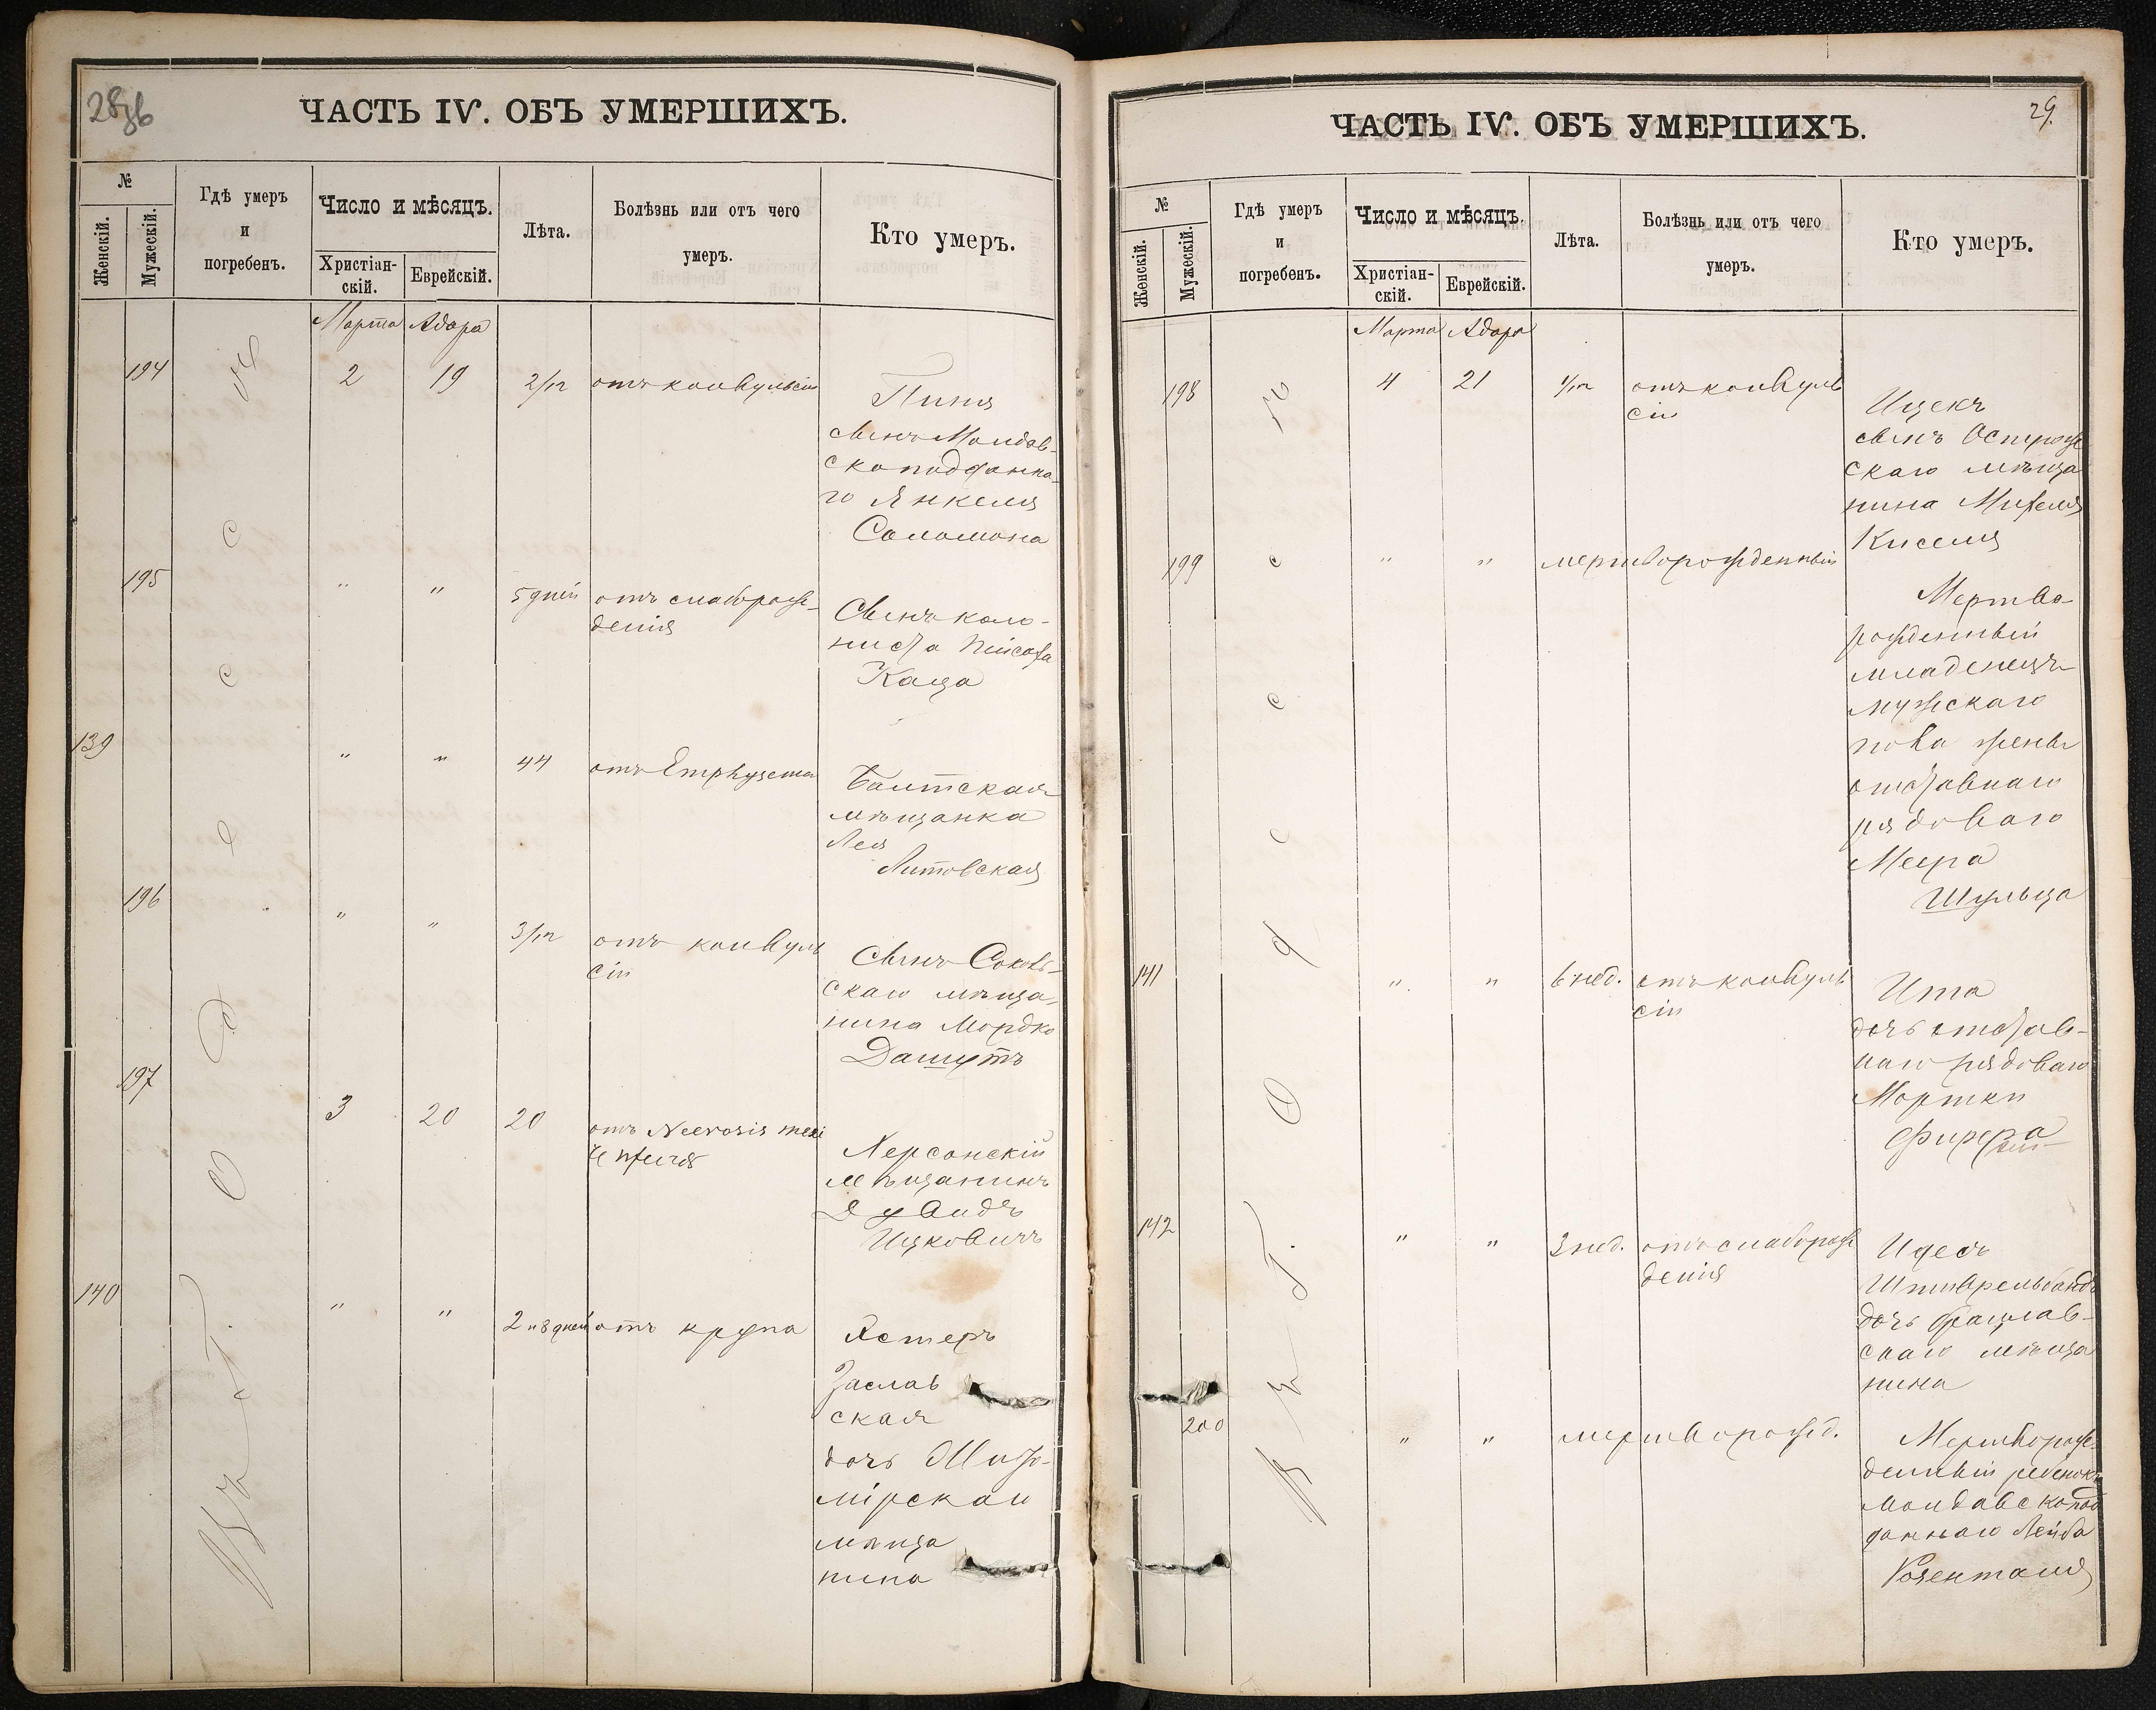 28
ЧАСТЬ IV. ОБЪ УМЕРШИХЪ.
№
Женскій.
Мужескій.
Гдѣ умеръ
и
погребенъ.
Число и мѣсяцъ.
Христіан-
скій.
Еврейскій.
Лѣта.
Болѣзнь или отъ чего
умеръ.
Кто умеръ.
Марта Адара
194 2 19 2/м отъ конвульсіи
Пиня
сынъ Молдав-
скоподданна-
го Янкеля
Соломона
195 " " 5 дней отъ слаборож-
денія
Сынъ коло-
ниста Пейсаха
Каца
139 " " 44 отъ Emphysema
Балтская
мѣщанка
Лея
Литовская
196 " " 3/м отъ конвуль
сіи
Сынъ
скаго мѣща-
нина Мордко
Дашутъ
197 3 20 20 отъ
Херсонскій
мѣщанинъ
Ицковичъ
140 " " 2 и 8 дней отъ крупа
Эстеръ
Заслав
ская
дочь Жито-
мірскаго
мѣща
нина
Въ г. Одессѣ
29.
ЧАСТЬ IV. ОБЪ УМЕРШИХЪ.
№
Женскій.
Мужескій.
Гдѣ умеръ
и
погребенъ.
Число и мѣсяцъ.
Христіан-
скій.
Еврейскій.
Лѣта.
Болѣзнь или отъ чего
умеръ.
Кто умеръ.
Марта Адара
198 4 21 1/м отъ конвуль
сіи
Ицекъ
сынъ Острож
скаго мѣща
нина Михеля
Киселя
199 " " мертворожденный
Мертво-
рожденный
младенецъ
мужскаго
пола жены
отставнаго
рядоваго
Меера
Шульца
141 " " 6 нед. отъ конвуль
сіи
Ита
дочь отстав-
наго рядоваго
Мортки
142 " " 3 нед. отъ слаборож
денія
Идесъ
дочь брацлав-
скаго мѣща
нина
200 " " мертворожд.
Мертворож-
денный ребенокъ
молдавскопод
даннаго Лейба
Розенталя
Въ г. Одессѣ